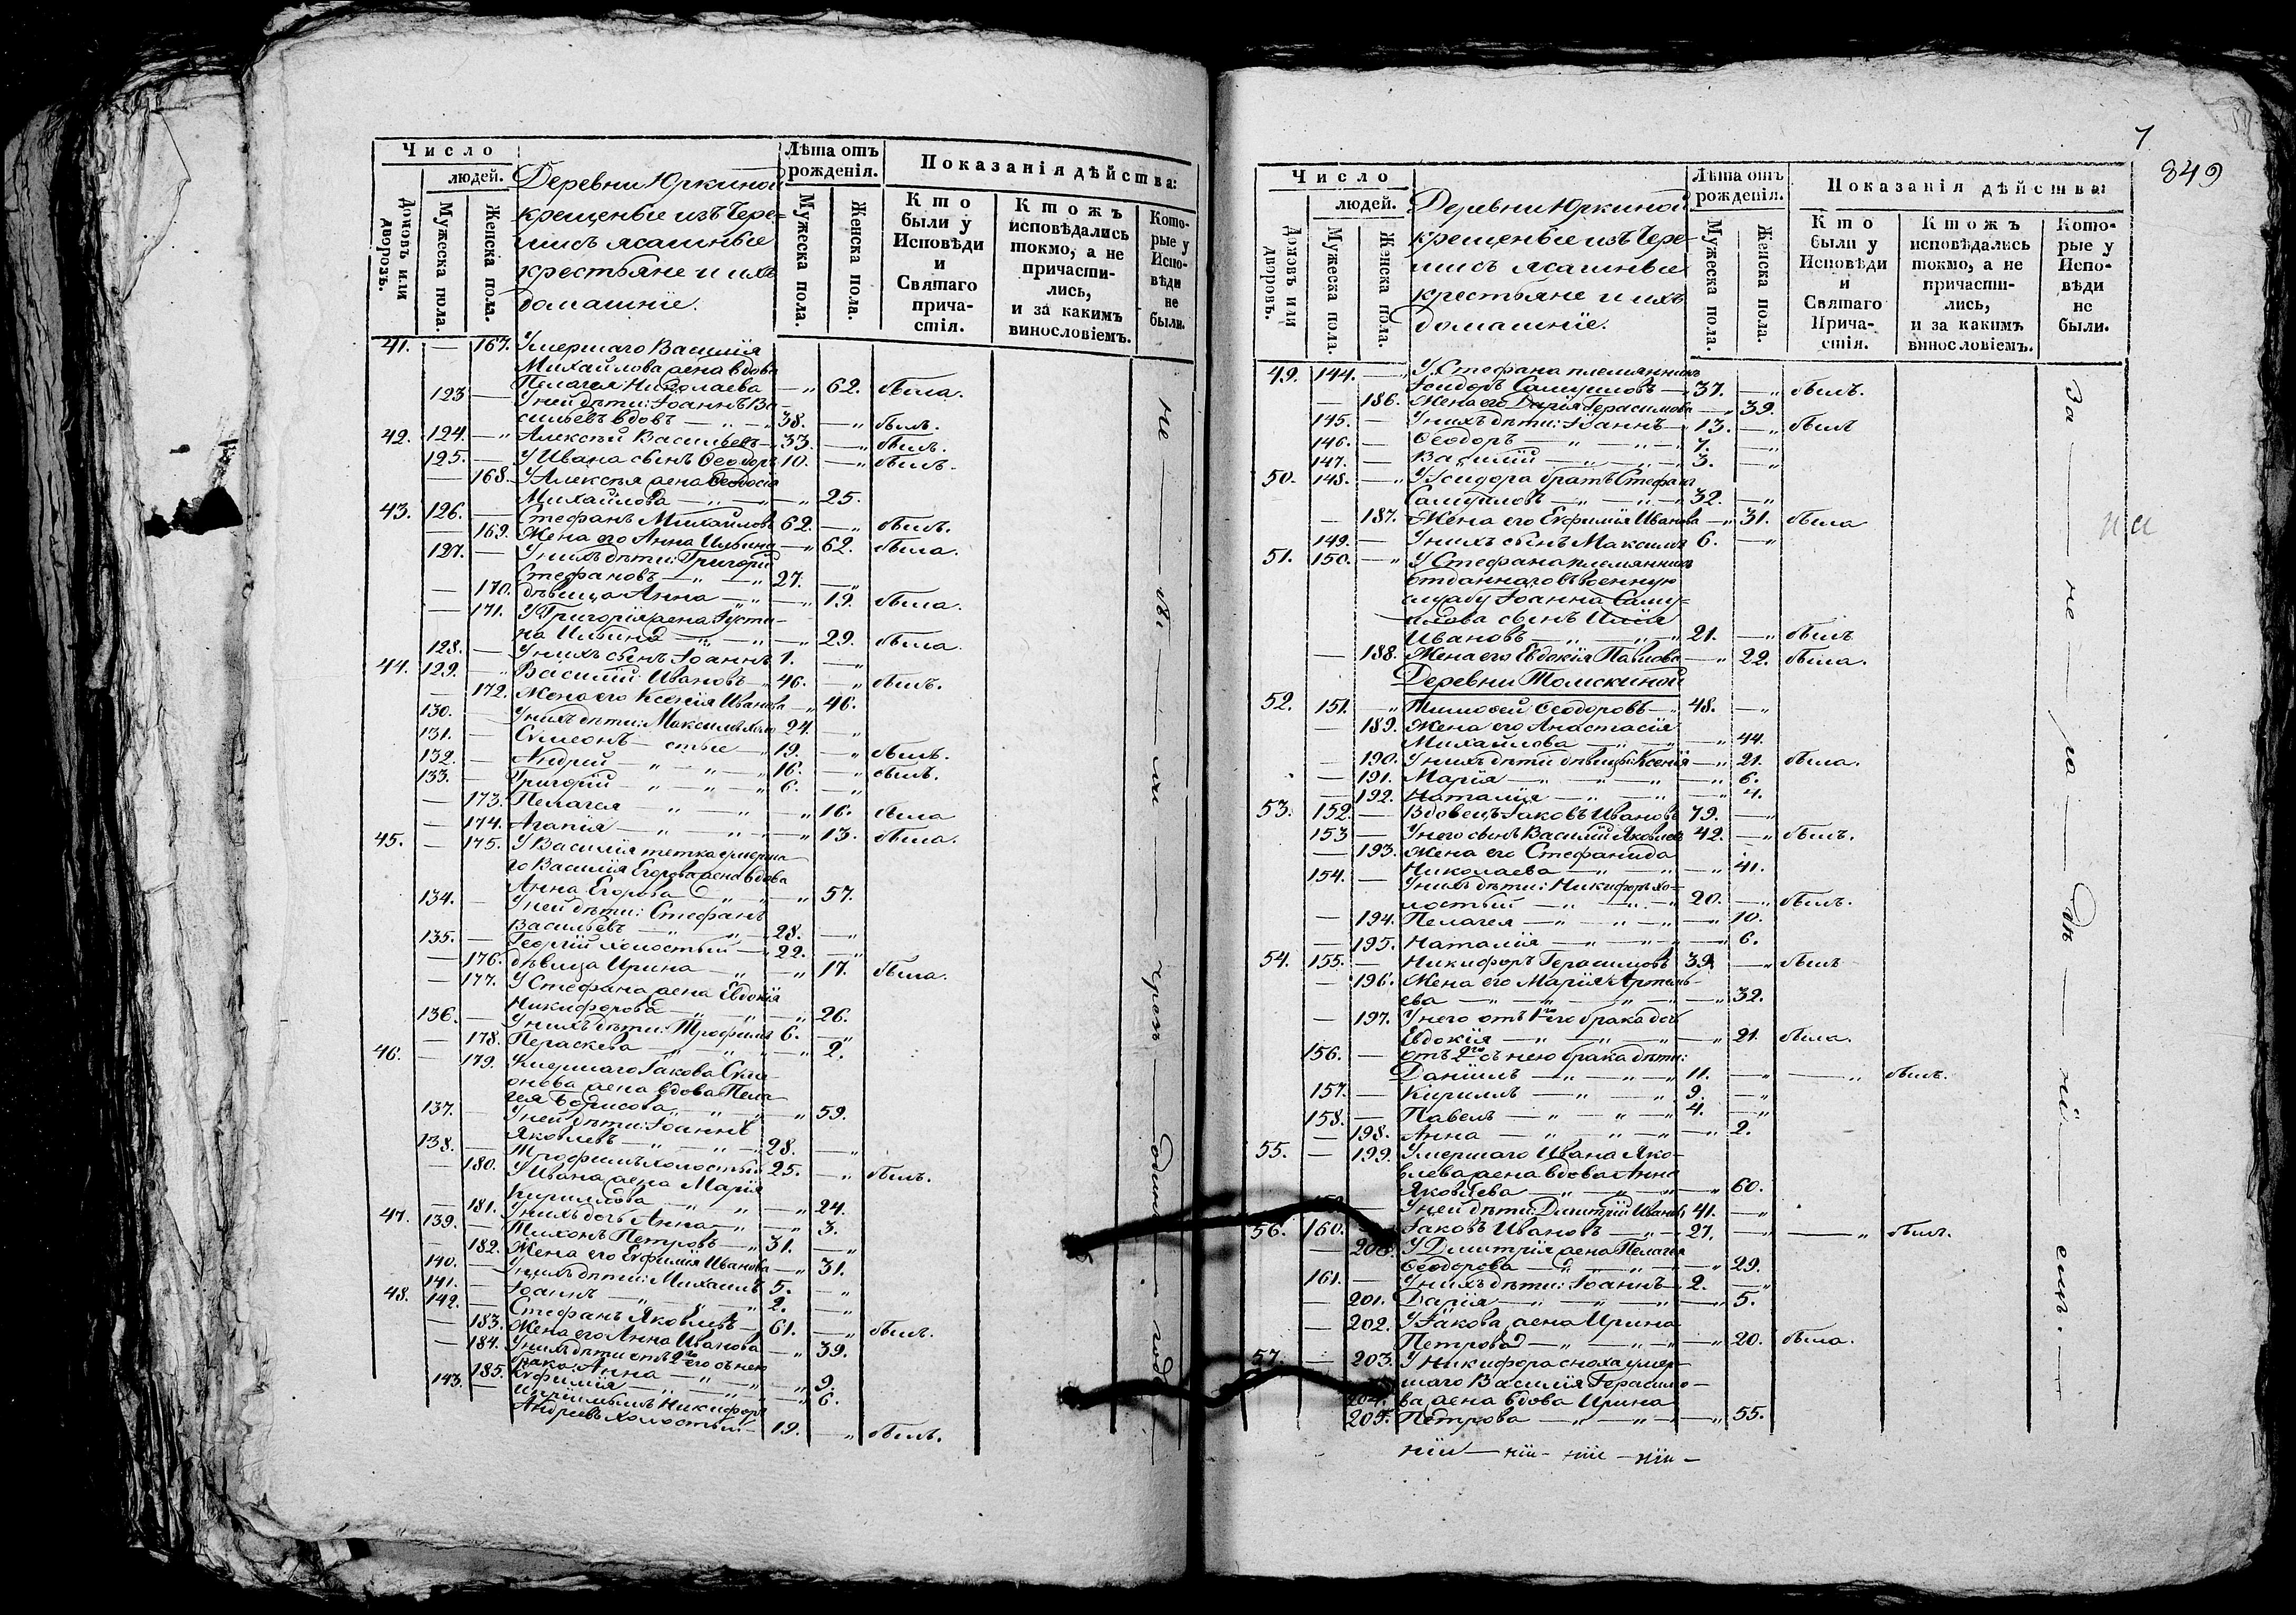 Число
людей.
Домовъ или дворовъ.
Мужеска пола.
Женска пола.
Деревни Юркиной
крещеные изъ Чере-
мисъ ясашные
крестьяне и ихъ
домашніе.
Лѣта отъ
рожденія.
Мужеска пола.
Женска пола.
Показанія дѣйства:
Кто
были у
Исповѣди
и
Святаго
прича-
стія.
Ктожъ
исповѣдались
токмо, а не
причасти-
лись,
и за какимъ
винословіемъ.
Кото-
рые у
Испо-
вѣди
не
были.
41. — 167. Умершаго Василія
Михайлова жена вдова
Пелагея Николаева — „ 62. была.
123 — У ней дѣти: Іоаннъ Ва-
сильевъ вдовъ — „ — „ 38. — „ былъ.
42. 124. — „ Алексѣй Васильевъ — 33. — „ былъ.
125. — У Ивана сынъ Ѳеодоръ 10. — „ былъ.
— 168. У Алексѣя жена Ѳеодосія
Михайлова — „ — „ — „ 25.
43. 126. — Стефанъ Михайловъ 62. — „ былъ.
— 169. Жена его Анна Ильина — „ 62. была.
127. — У нихъ дѣти: Григорій
Стефановъ — „ — „ 27. — „
— 170. дѣвица Анна — „ — „ 19. была.
— 171. У Григорія жена Іусти-
на Ильина — „ — „ — „ 29. была.
128. — У нихъ сынъ Іоаннъ 1. — „
44. 129. — „ Василій Ивановъ — „ 46. — „ былъ.
— 172. Жена его Ксенія Иванова — „ 46.
130. — У нихъ дѣти: Максимъ холо 24. — „
131. — Симеонъ — стые — „ 19. — „ былъ.
132. — Андрей — „ — „ — „ 16. — „ былъ.
133. — Григорій — „ — „ — „ 6. — „
— 173. Пелагея — „ — „ — „ 16. была
— 174. Агапія — „ — „ — „ 13. была.
45. — 175. У Василія тетка умерша-
го Василія Егорова жена вдова
Анна Егорова — „ — „ — „ 57.
134. — У ней дѣти: Стефанъ
Васильевъ — „ — „ 28. — „
135. — Георгій холостый — „ 22. — „
— 176. дѣвица Ирина — „ — „ 17. была.
— 177. У Стефана жена Евдокія
Никифорова — „ — „ — „ 26.
136. — У нихъ дѣти: Трофимъ 6. — „
— 178. Пераскева — „ — „ — „ 2.
46. — 179. Умершаго Іакова Симе-
онова жена вдова Пела-
гея Борисова — „ — „ — „ 59.
137. — У ней дѣти: Іоаннъ
Яковлевъ — „ — „ 28. — „
138. — Трофимъ холостый 25. — „ былъ.
— 180. У Ивана жена Марія
Кириллова — „ — „ — „ 24.
— 181. У нихъ дочь Анна — „ — „ 3.
47. 139. — Тихонъ Петровъ — „ 31. — „
— 182. Жена его Евфимія Иванова — „ 31.
140. — У нихъ дѣти: Михаилъ 5. — „
141. — Іоаннъ — „ — „ — „ 2. — „
48. 142. — Стефанъ Яковлевъ — 61. — „ былъ.
— 183. Жена его Анна Иванова — „ 39.
— 184. У нихъ дѣти отъ 2го его съ нею
брака: Анна — „ — „ — „ 9.
— 185. Евфимія — „ — „ — „ 6.
143. — Никифоръ
Андреевъ холостый — 19. — „ былъ.
не — — — хрест — один — год
7
849
Число
людей.
Домовъ или дворовъ.
Мужеска пола.
Женска пола.
Деревни Юркиной
крещеные изъ Чере-
мисъ ясашные
крестьяне и ихъ
домашніе.
Лѣта отъ
рожденія.
Мужеска пола.
Женска пола.
Показанія дѣйства:
Кто
были у
Исповѣди
и
Святаго
Прича-
стія.
Ктожъ
исповѣдались
токмо, а не
причасти-
лись,
и за какимъ
винословіемъ.
Кото-
рые у
Испо-
вѣди
не
были.
49. 144. — У Стефана племянникъ
Исидоръ Самуиловъ — 37. — „ былъ.
— 186. Жена его Дарія Герасимова — „ 39.
145. — У нихъ дѣти: Іоаннъ — „ 13. — „ былъ
146. — Ѳеодоръ — „ — „ — „ 7. — „
147. — Василій — „ — „ — „ 3. — „
50. 148. — „ У Исидора братъ Стефанъ
Самуиловъ — „ — „ — „ 32. — „
— 187. Жена его Евфимія Иванова — „ 31. была
149. — У нихъ сынъ Максимъ 6. — „
51. 150. — „ У Стефана племянника
отданнаго въ военную
службу Іоанна Саму-
илова сынъ Илія
Ивановъ — „ — „ — „ 21. — „ былъ
— 188. Жена его Евдокія Павлова — „ 22. была.
Деревни Томскиной
52. 151. — „ Тимоѳей Ѳеодоровъ — „ 48. — „
— 189. Жена его Анастасія
Михайлова — „ — „ — „ 44.
— 190. У нихъ дѣти дѣвицы: Ксенія — „ 21. была.
— 191. Марія — „ — „ — „ 6.
— 192. Наталія — „ — „ — „ 4.
53. 152. — Вдовецъ Іаковъ Ивановъ 79. — „
153 — У него сынъ Василій Яковлевъ 42. — „ былъ.
— 193. Жена его Стефанида
Николаева — „ — „ — „ 41.
154. — У нихъ дѣти: Никифоръ хо-
лостый — „ — „ — „ 20. — „ былъ.
— 194. Пелагея — „ — „ — „ 10.
— 195. Наталія — „ — „ — „ 6.
54. 155. — Никифоръ Герасимовъ 39. — „ былъ
— 196. Жена его Марія Артемь-
ева — „ — „ — „ — „ 32.
— 197. У него отъ 1го его брака дочь
Евдокія — „ — „ — „ 21. была.
156. — отъ 2го съ нею брака дѣти:
Даніилъ — „ — „ — „ 11. — „ — „ былъ.
157. — Кириллъ — „ — „ 9. — „
158. — Павелъ — „ — „ — „ 4. — „
— 198. Анна — „ — „ — „ — „ 2.
55. — 199. Умершаго Ивана Яко-
влева жена вдова Анна
Яковлева — „ — „ — „ — „ 60.
159. — У ней дѣти: Димитрій Ивановъ 41. — „
56. 160. — Іаковъ Ивановъ — „ — 27. — „ — „ былъ.
— 200. У Димитрія жена Пелагея
Ѳеодорова — „ — „ — „ 29.
161. — У нихъ дѣти: Іоаннъ — 2. — „
— 201. Дарія — „ — „ — „ — „ 5.
— 202. У Іакова жена Ирина
Петрова — „ — „ — „ 20. была.
57. — 203. У Никифора сноха умер-
шаго Василія Герасимо-
204. ва жена вдова Ирина
205. Петрова — „ — „ — „ 55.
За — не — ра — дѣ — ніи — емъ. —
ніи — ніи — ніи — ніи —